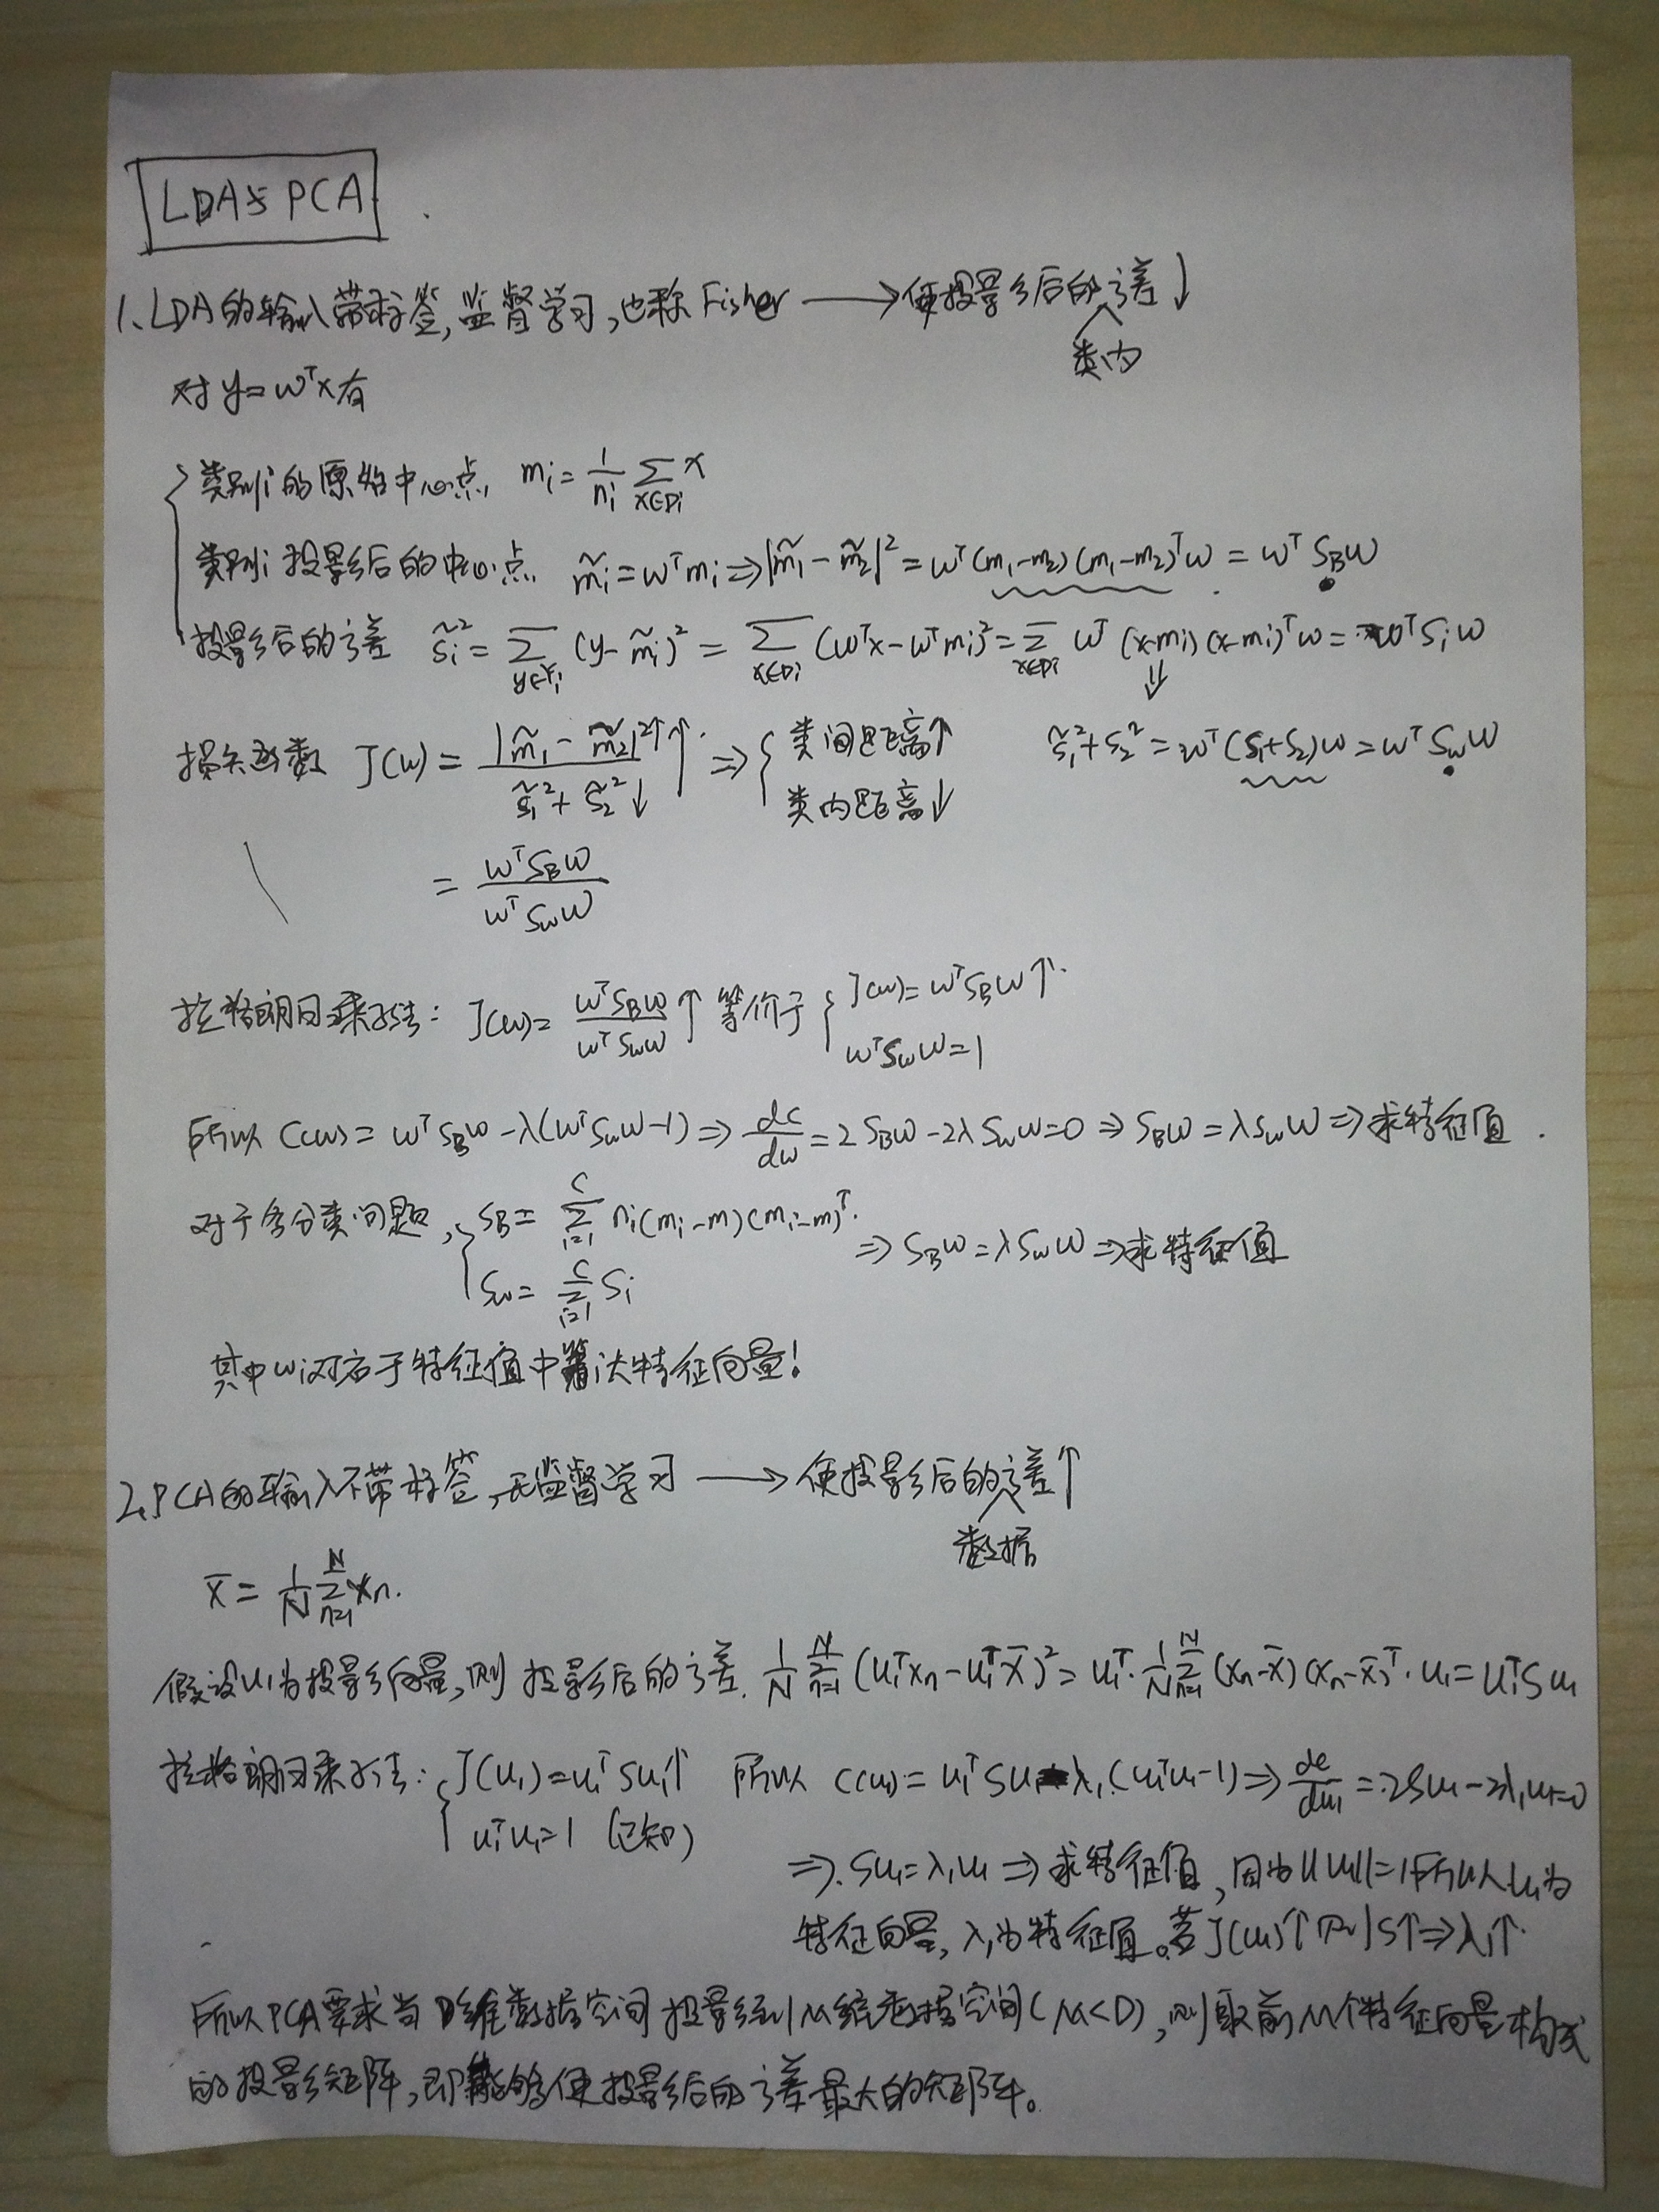 LDA与PCA
1、LDA的输入带标签,监督学习,也称Fisher ⟶ 使投影后的类内方差↓
对 y=wᵀx有
类别i的原始中心点 mᵢ = 1/nᵢ Σ_{x∈Dᵢ} x
类别i投影后的中心点 m̃ᵢ = wᵀmᵢ ⇒ |m̃₁ - m̃₂|² = wᵀ(m₁-m₂)(m₁-m₂)ᵀw = wᵀS_Bw
投影后的方差 s̃ᵢ² = Σ_{y∈Yᵢ} (y-m̃ᵢ)² = Σ_{x∈Dᵢ} (wᵀx-wᵀmᵢ)² = Σ_{x∈Dᵢ} wᵀ(x-mᵢ)(x-mᵢ)ᵀw = wᵀSᵢw
⇓
损失函数 J(w) = |m̃₁ - m̃₂|²↑ / s̃₁² + s̃₂²↓ ↑ ⇒ { 类间距离↑ 类内距离↓ s̃₁²+s̃₂² = wᵀ(S₁+S₂)w = wᵀS_ww
= wᵀS_Bw / wᵀS_ww
拉格朗日乘子法: J(w) = wᵀS_Bw / wᵀS_ww ↑ 等价于 { J(w) = wᵀS_Bw↑ wᵀS_ww = 1
所以 C(w) = wᵀS_Bw - λ(wᵀS_ww - 1) ⇒ dc/dw = 2S_Bw - 2λS_ww = 0 ⇒ S_Bw = λS_ww ⇒ 求特征值
对于多分类问题, { S_B = Σ_{i=1}^{c} nᵢ(mᵢ-m)(mᵢ-m)ᵀ ⇒ S_Bw = λS_ww ⇒ 求特征值
S_w = Σ_{i=1}^{c} Sᵢ
其中wᵢ对应于特征值中第i大特征向量!
2、PCA的输入不带标签,无监督学习 ⟶ 使投影后的数据方差↑
x̄ = 1/N Σ_{n=1}^{N} xₙ.
假设u₁为投影向量,则投影后的方差 1/N Σ_{n=1}^{N} (u₁ᵀxₙ - u₁ᵀx̄)² = u₁ᵀ· 1/N Σ_{n=1}^{N} (xₙ-x̄)(xₙ-x̄)ᵀ·u₁ = u₁ᵀSu₁
拉格朗日乘子法: { J(u₁) = u₁ᵀSu₁↑ 所以 C(u₁) = u₁ᵀSu₁ λ₁(u₁ᵀu₁-1) ⇒ dc/du₁ = 2Su₁ - 2λ₁u₁ = 0
u₁ᵀu₁ = 1 (已知)
⇒ Su₁ = λ₁u₁ ⇒ 求特征值,因为||u₁||=1所以u₁为
特征向量,λ₁为特征值。若J(u₁)↑则S↑⇒λ₁↑
所以PCA要求当D维数据空间投影到M维数据空间(M<D),则取前M个特征向量构成
的投影矩阵,即能够使投影后的方差最大的矩阵。